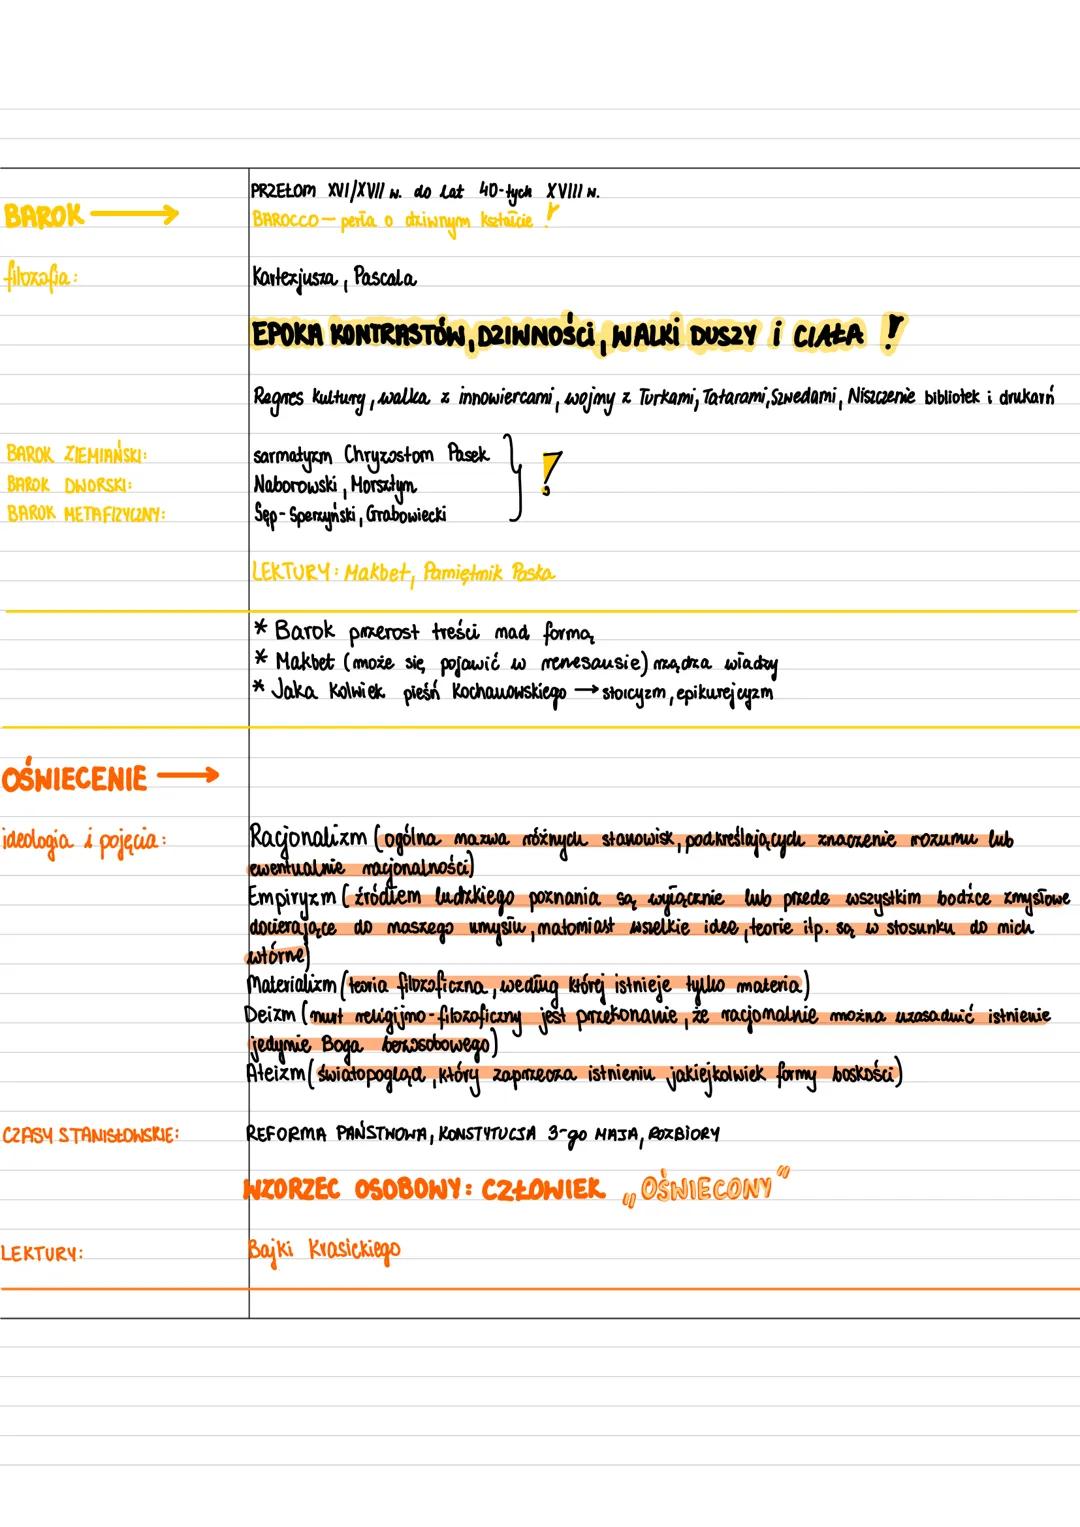 PRZEŁOM XVI/XVII w. do lat 40-tych XVIII w.
BAROK →
BAROCCO - perła o dziwnym kształcie !
filozofia:
Kartezjusza, Pascala
EPOKA KONTRASTÓW, DZIWNOŚCI, WALKI DUSZY i CIAŁA !
Regres kultury, walka z innowiercami, wojny z Turkami, Tatarami, Szwedami, Niszczenie bibliotek i drukarń
BAROK ZIEMIAŃSKI: sarmatyzm Chryzostom Pasek
BAROK DWORSKI: Naborowski, Morsztym
BAROK METAFIZYCZNY: Sęp-Sperzyński, Grabowiecki
!
LEKTURY: Makbet, Pamiętnik Paska
* Barok przerost treści nad formą
* Makbet (może się pojawić w renesansie) rządza władzy
* Jaka kolwiek pieśń Kochanowskiego → stoicyzm, epikurejcyzm
OŚWIECENIE →
ideologia i pojęcia:
Racjonalizm (ogólna nazwa różnych stanowisk, podkreślających znaczenie rozumu lub
ewentualnie racjonalności)
Empiryzm (źródłem ludzkiego poznania są wyłącznie lub przede wszystkim bodźce zmysłowe
docierające do naszego umysłu, natomiast wselkie idee, teorie itp. są w stosunku do nich
wtórne)
Materializm (teoria filozoficzna, według której istnieje tylko materia)
Deizm (nurt religijno-filozoficzny jest przekonanie, że racjonalnie można uzasadnić istnienie
jedynie Boga bezosobowego)
Ateizm (światopogląd, który zaprzecza istnieniu jakiejkolwiek formy boskości)
CZASY STANISŁOWSKIE: REFORMA PAŃSTWOWA, KONSTYTUCJA 3-go MAJA, ROZBIORY
WZORZEC OSOBOWY: CZŁOWIEK „OŚWIECONY"
LEKTURY: Bajki Krasickiego